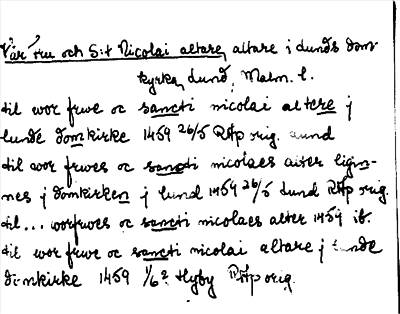 Vår fru och S:t Nicolai altare, altare i Lunds dom-
kyrka, Lund, Malm. l.
til wor frwe oc sancti nicolai altere j
lunde domkirke 1459 26/5 RAp orig. Lund
til wor frwes oc sancti nicolaes alter liggn-
nes j domkirken j lund 1459 26/5 Lund RAp orig.
til... worfrwes oc sancti nicolaes alter 1459 ib.
til wor frwe oc sancti nicolai altare j lunde
domkirke 1459 1/6 Hyby RAp orig.